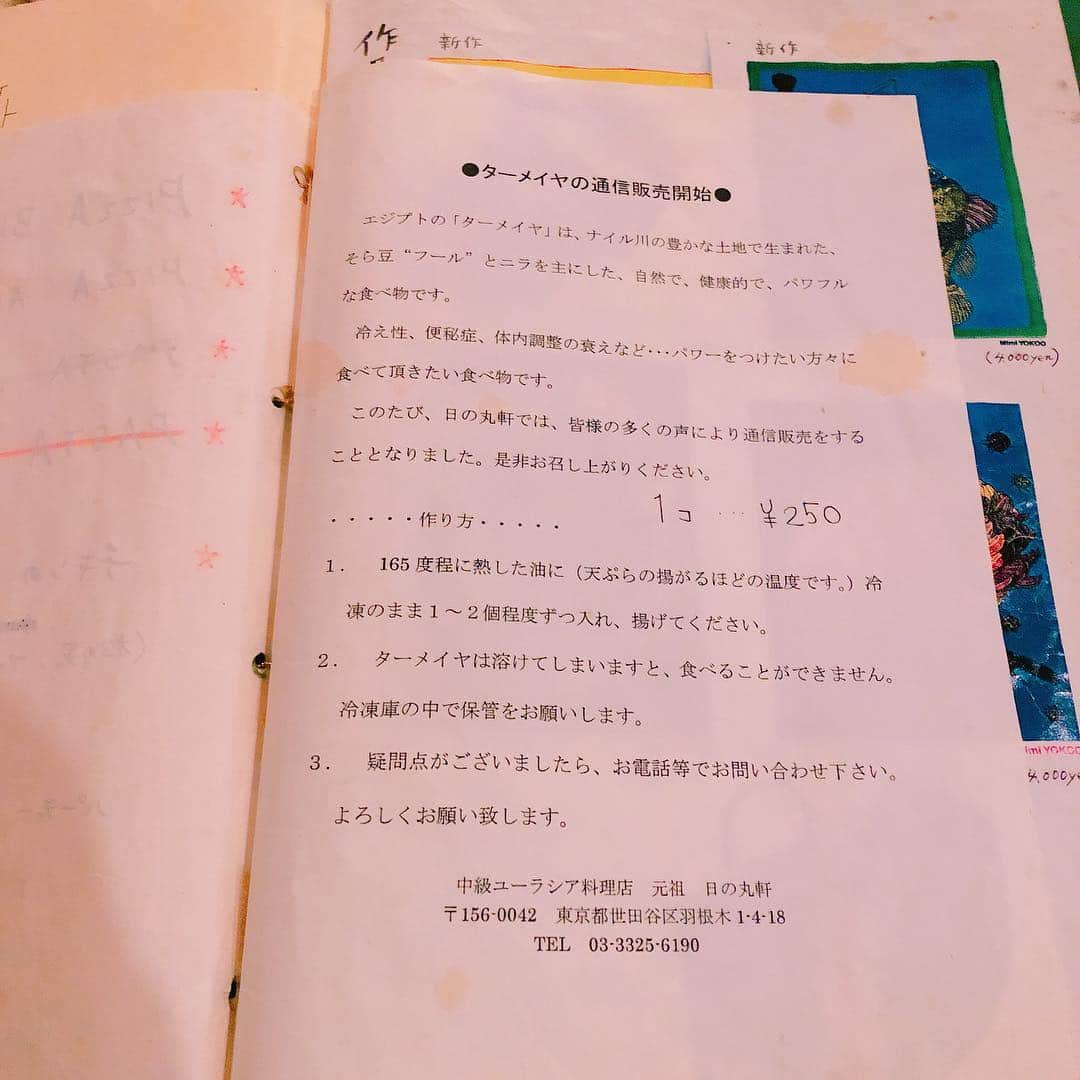 作 新作
新作
●ターメイヤの通信販売開始●
エジプトの「ターメイヤ」は、ナイル川の豊かな土地で生まれた、
そら豆“フール”とニラを主にした、自然で、健康的で、パワフル
な食べ物です。
冷え性、便秘症、体内調整の衰えなど･･･パワーをつけたい方々に
食べて頂きたい食べ物です。
このたび、日の丸軒では、皆様の多くの声により通信販売をする
こととなりました。是非お召し上がりください。
・・・・・作り方・・・・・
1コ … ¥250
１． 165度程に熱した油に（天ぷらの揚がるほどの温度です。）冷
凍のまま１～２個程度ずつ入れ、揚げてください。
２． ターメイヤは溶けてしまいますと、食べることができません。
冷凍庫の中で保管をお願いします。
３． 疑問点がございましたら、お電話等でお問い合わせ下さい。
よろしくお願い致します。
中級ユーラシア料理店 元祖 日の丸軒
〒156-0042 東京都世田谷区羽根木 1-4-18
TEL 03-3325-6190
Mimi YOKOO
(4,000yen)
imi YOKOO
4,000ye